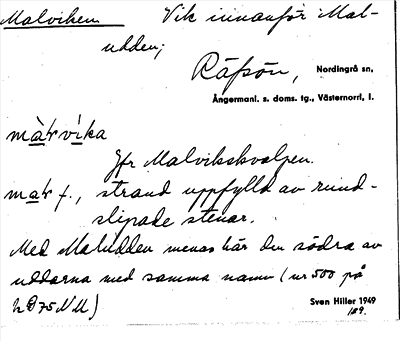 Malviken Vik innanför Mal-
udden;
Räfsön, Nordingrå sn,
Ångermanl. s. doms. tg., Västernorrl. l.
màrvìka
Jfr Malvikskvalpen.
mar f., strand uppfylld av rund-
slipade stenar.
Med Maludden menas här den södra av
uddarna med samma namn (nr 500 på
75 NU)
Sven Hiller 1949
189.